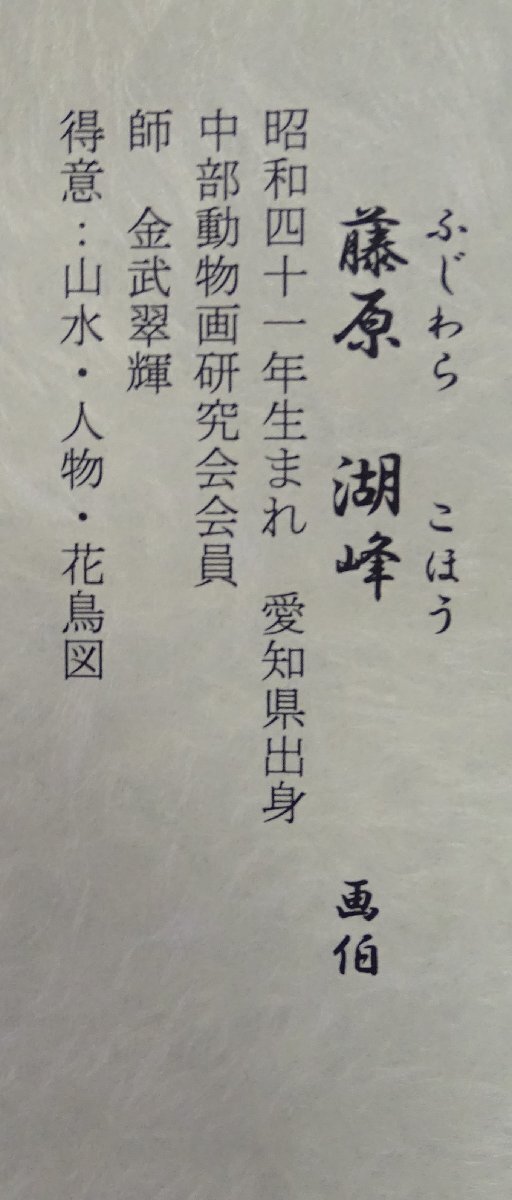 ふじわら こほう
藤原 湖峰 画伯
昭和四十一年生まれ 愛知県出身
中部動物画研究会会員
師 金武翠輝
得意:山水・人物・花鳥図